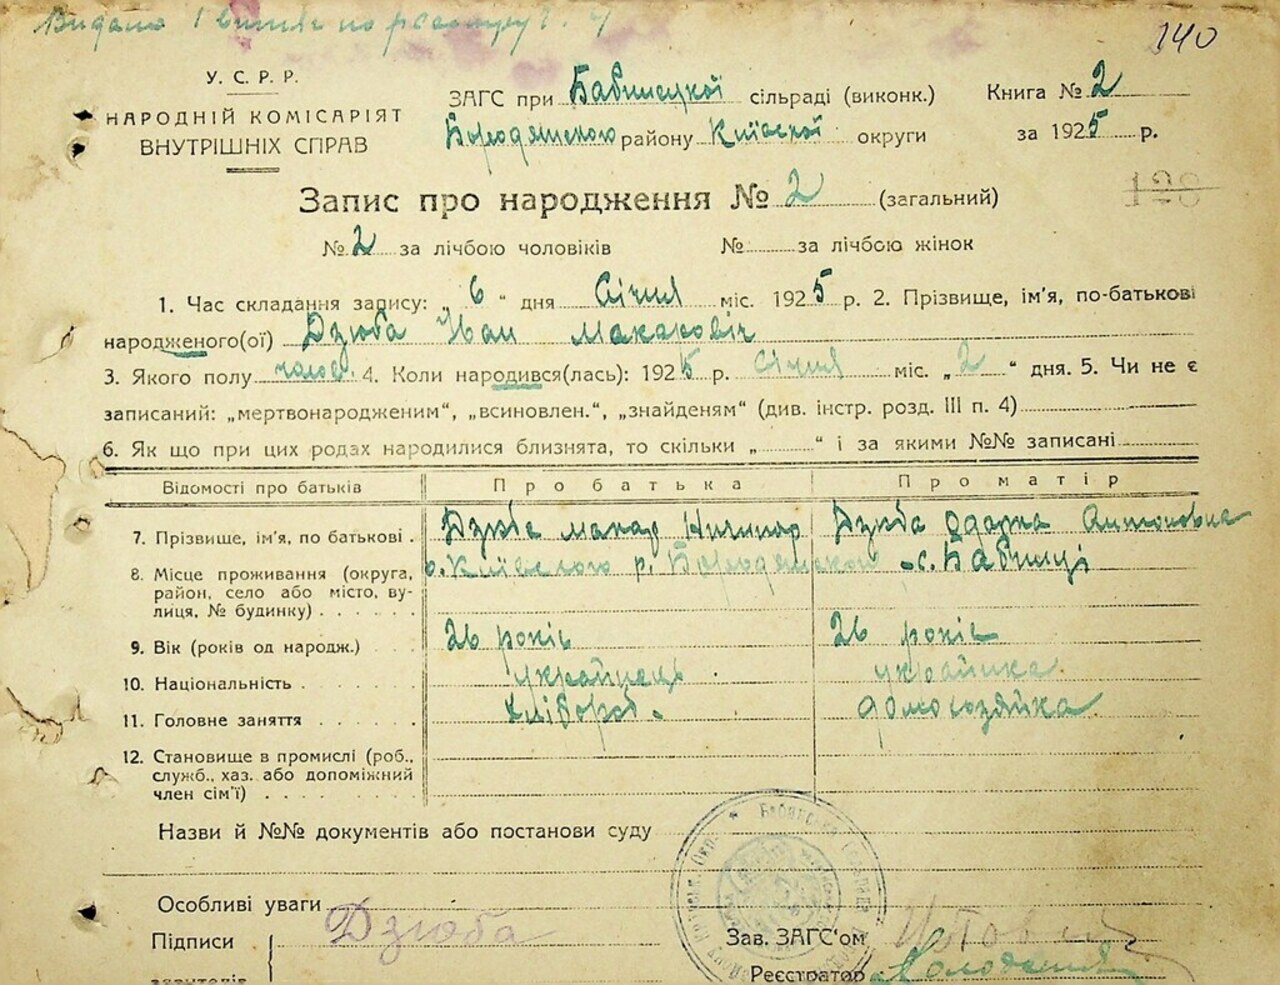 Видано 1 витяг по
140
У. С. Р. Р.
НАРОДНІЙ КОМІСАРІЯТ
ВНУТРІШНІХ СПРАВ
ЗАГС при Бабинецкої сільраді (виконк.) Книга № 2
Бородянского району Київскої округи за 1925 р.
Запис про народження № 2 (загальний)
128
№ 2 за лічбою чоловіків № за лічбою жінок
1. Час складання запису: „ 6 “ дня Січня міс. 1925 р. 2. Прізвище, ім'я, по-батькові
народженого(ої) Дзюба Іван Макарович
3. Якого полу чолов. 4. Коли народився(лась): 1925 р. січня міс. „ 2 “ дня. 5. Чи не є
записаний: „мертвонародженим“, „всиновлен.“, „знайденям“ (див. інстр. розд. III п. 4)
6. Як що при цих родах народилися близнята, то скільки „ “ і за якими №№ записані
Відомості про батьків Про батька Про матір
7. Прізвище, ім'я, по батькові . Дзюба Макар Ничипор Дзюба Одарка Антоновна
8. Місце проживання (округа, о. Київского р. Бородянского с. Бабинці
район, село або місто, ву-
лиця, № будинку) . . . . .
9. Вік (років од народж.) . . . 26 років 26 років
10. Національність . . . . . . . українець українка
11. Головне заняття . . . . . . хлібороб. домохозяйка
12. Становище в промислі (роб.,
служб., хаз. або допоміжний
член сім'ї) . . . . . . . .
Назви й №№ документів або постанови суду
Особливі уваги
Підписи Дзюба Зав. ЗАГС'ом
Реєстратор